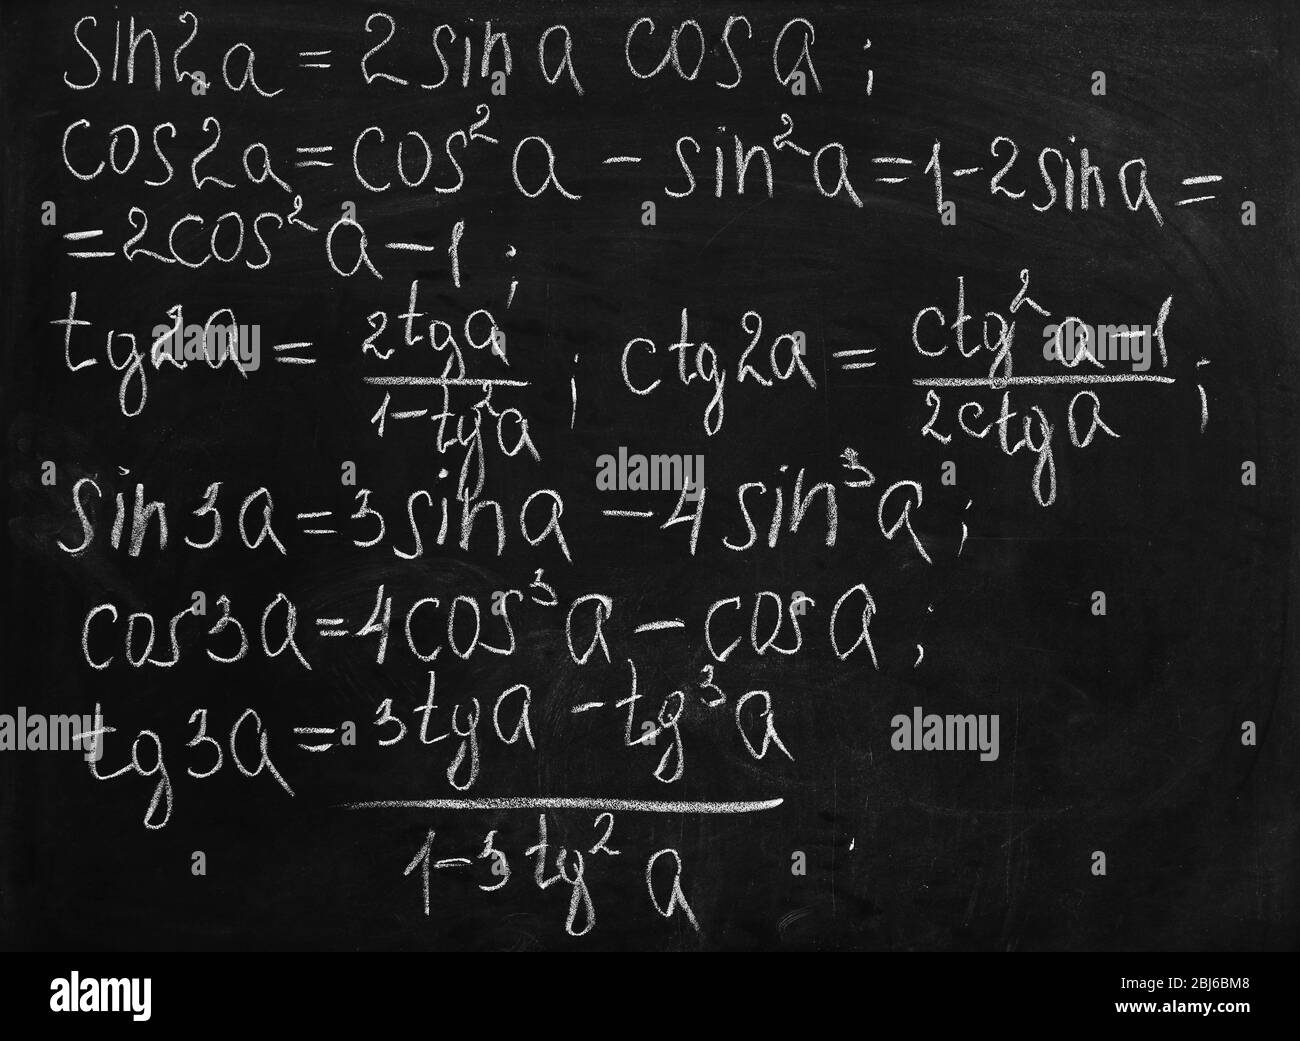 sin2a = 2sina cosa;
cos2a = cos²a - sin²a = 1-2sina =
= 2cos²a - 1;
tg2a = 2tga / 1-tg²a; ctg2a = ctg²a-1 / 2ctga;
sin3a = 3sina - 4sin³a;
cos3a = 4cos³a - cosa;
tg3a = 3tga - tg³a / 1-3tg²a
alamy
alamy
Image ID: 2BJ6BM8
www.alamy.com